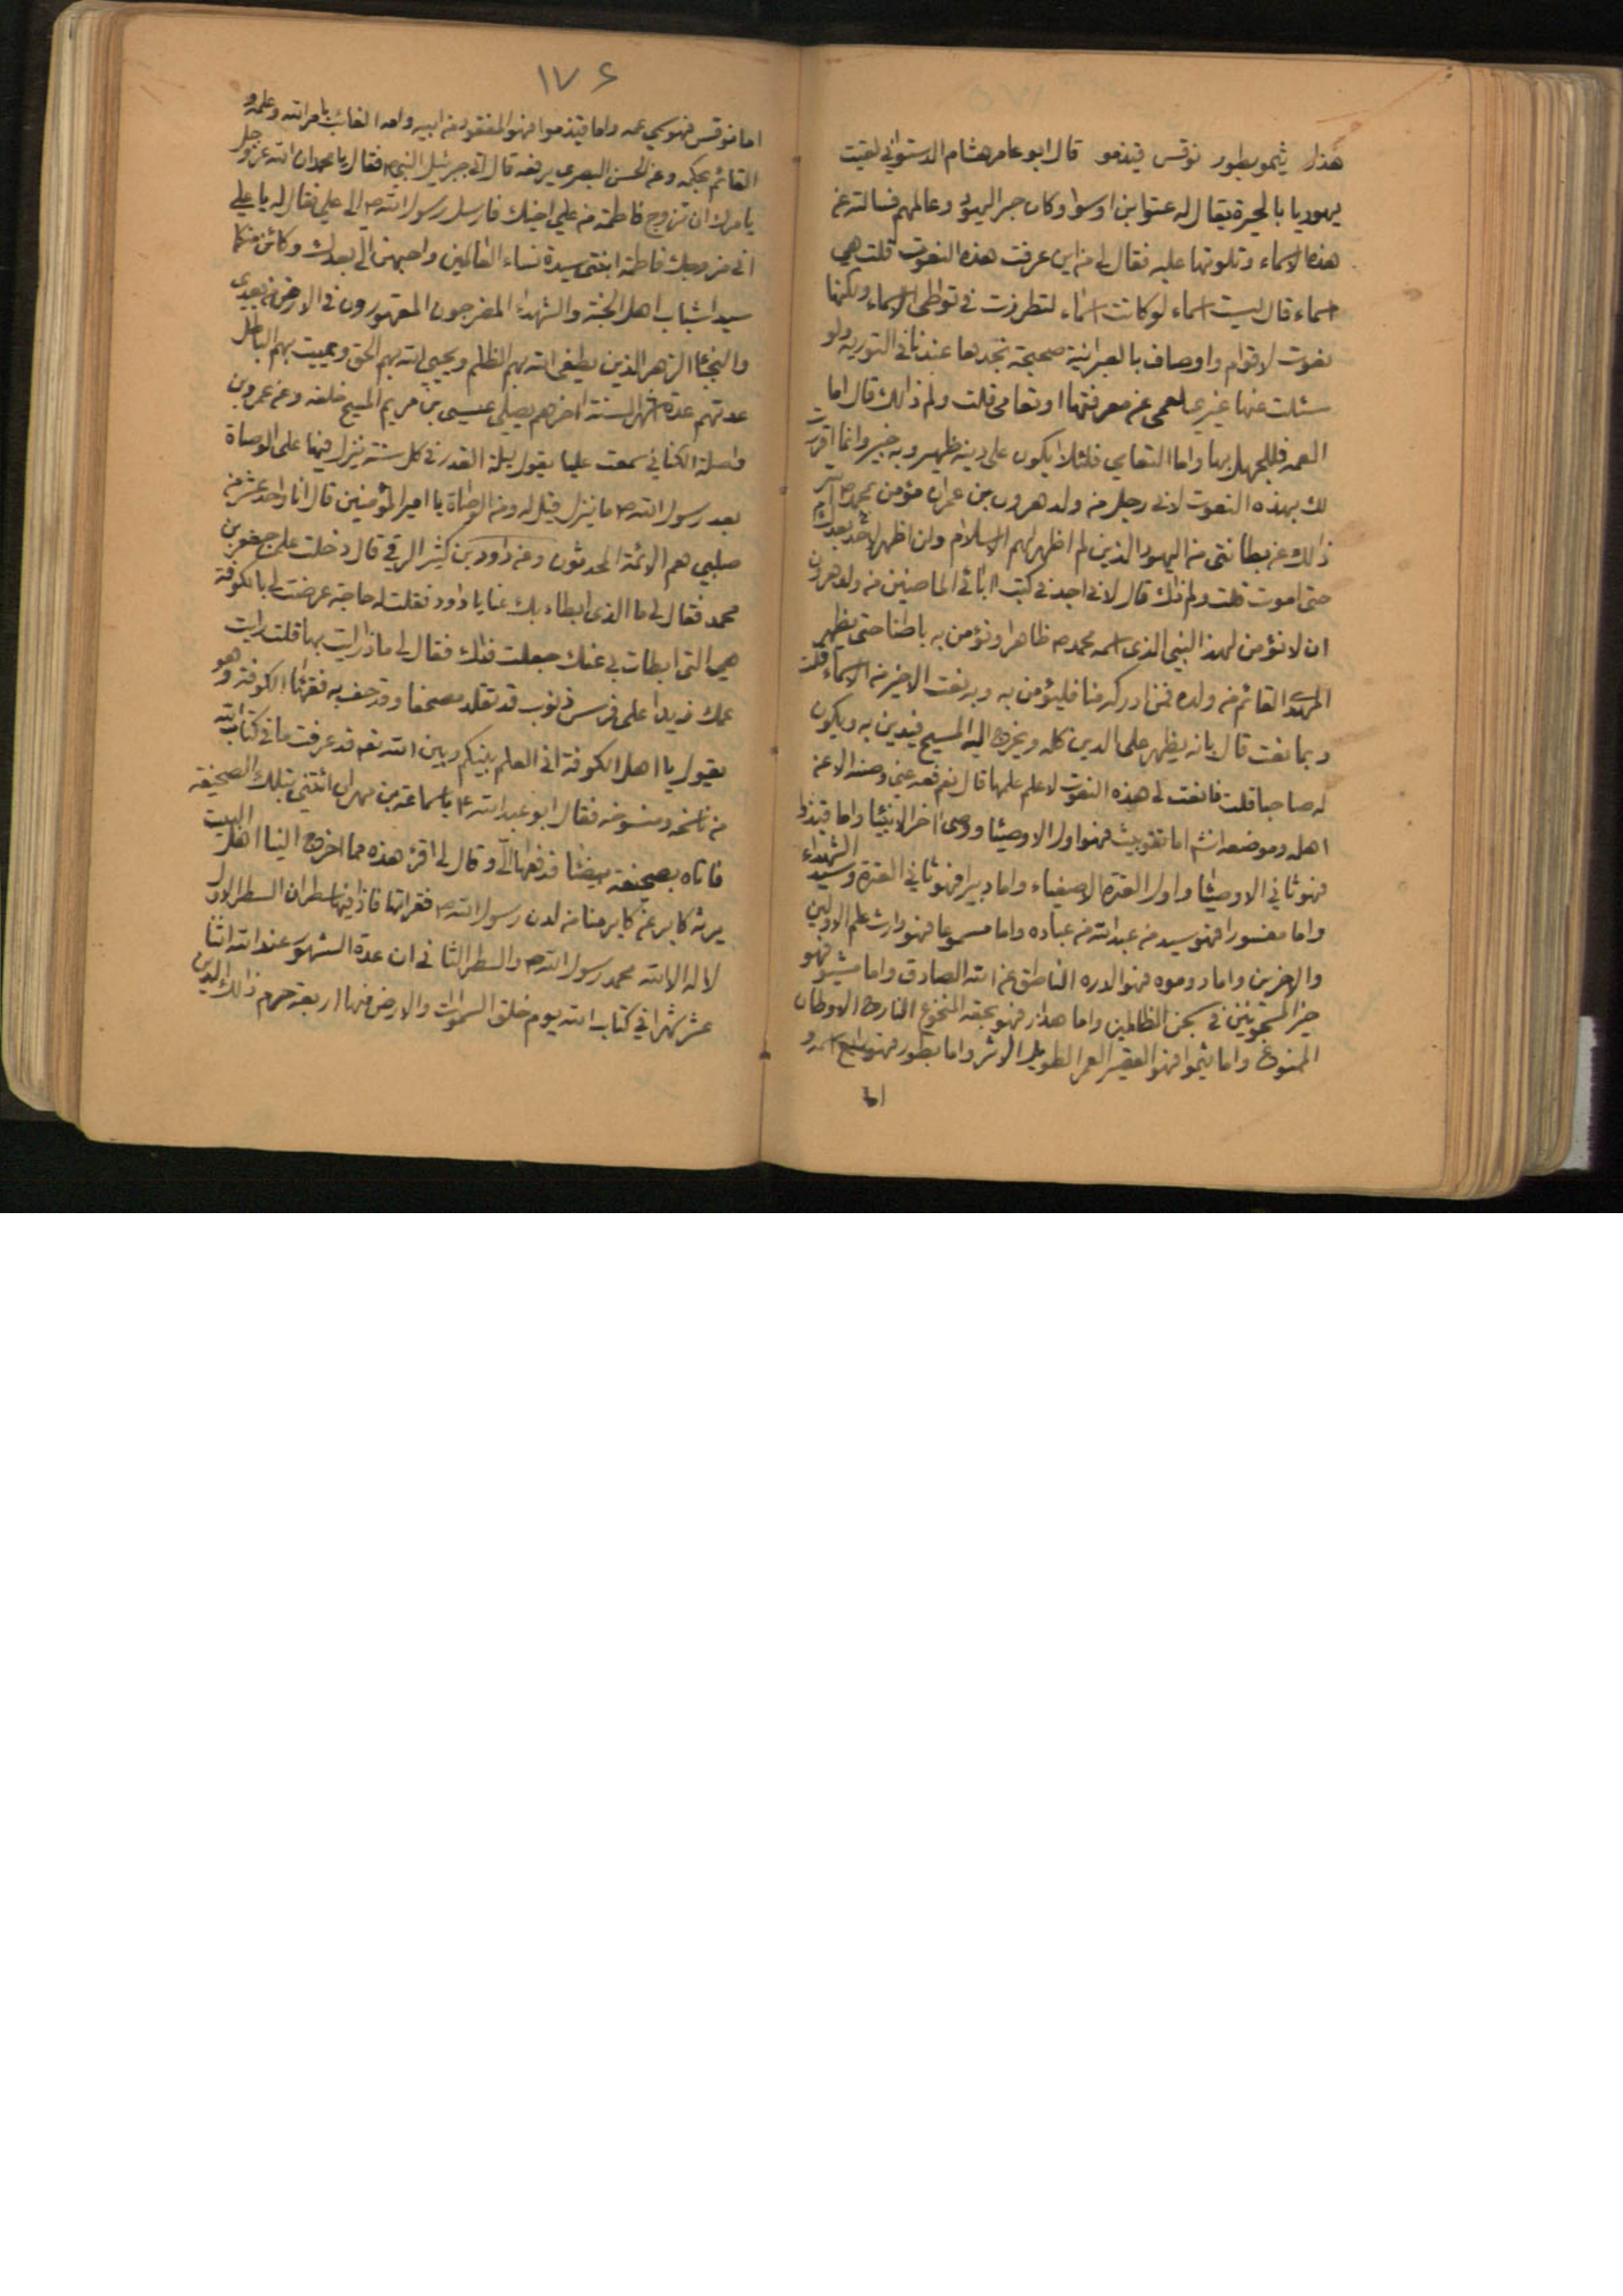 هذار يثيمو بطور نوقس قيذمو قال ابو عامر هشام الدستوائي لقيت
يهوديا بالحيرة يقال له عتوا بن اوسوا وكان حبر اليهود وعالمهم فسالته عن
هذه الاسماء وتلوتها عليه فقال لي من اين عرفت هذه النعوت قلت هي
اسماء قال ليست اسماء لو كانت اسماء لتطرزت في تواطى الاسماء ولكنها
نعوت لاقوام واوصاف بالعبرانية صحيحة نجدها عندنا في التورية ولو
سئلت عنها غيري لعمى عن معرفتها او تعامى قلت ولم ذلك قال اما
العمه فللجهل بها واما التعامي فلئلا يكون على دينه ظهير وبه خبير وانما اقررت
لك بهذه النعوت لاني رجل من ولد هرون بن عمران مؤمن بمحمد ص اسر
ذلك عن بطانتي من اليهود الذين لم اظهر لهم الاسلام ولن اظهر لاحد بعدك
حتى اموت قلت ولم ذلك قال لاني اجد في كتب ابائي الماضين من ولد هرون
ان لا نؤمن لهذا النبي الذي اسمه محمد ص ظاهرا ونؤمن به باطنا حتى يظهر
المهدي القائم من ولده فمن ادركه منا فليؤمن به وبه نعت الاخير من الاسماء قلت
وبما نعت قال بانه يظهر على الدين كله ويخرج اليه المسيح فيدين به ويكون
له صاحبا قلت فانعت لي هذه النعوت لاعلم علمها قال نعم فعه عني وصنه الا عن
اهله وموضعه انشم اما تقوبيث فهو اول الاوصيا ووصى اخر الانبيا واما قيذوا
فهو ثاني الاوصيا واول العترة الاصفياء واما دبيرا فهو ثاني العترة وسيد الشهداء
واما مفسورا فهو سيد من عبد الله من عباده واما مسموعا فهو وارث علم الاولين
والاخرين واما دوموه فهو الدره الناطق عن الله الصادق واما مشيو فهو
خير المسجونين في سجن الظالمين واما هذار فهو بحقه المنخوع النازح الاوطان
الممنوع واما يثموا فهو القصير العمر الطويل الاثر واما بطور فهو رابع اسمه و
اما
١٧۶
اما نوقس فهو سمي عمه واما قيذموا فهو المفقود من ابيه وامه الغائب بامر الله وعلمه و
القائم بحكمه وعن الحسن البصرى يرفعه قال اتى جبرئيل النبي ص فقال يا محمد ان الله عز وجل
يامرك ان تزوج فاطمة من علي اخيك فارسل رسول الله ص الى علي فقال له يا علي
اني مزوجك فاطمة ابنتي سيدة نساء العالمين واحبهن الى بعدك وكائن منكما
سيدا شباب اهل الجنة والشهداء المضرجون المقهورون في الارض من بعدى
والنجبا الزهر الذين يطفى الله بهم الظلم ويحيي الله بهم الحق ويميت بهم الباطل
عدتهم عدة اشهر السنة اخرهم يصلى عيسى بن مريم المسيح خلفه وعن عمرو بن
واصلة الكناني سمعت عليا يقول ليلة القدر في كل سنة ينزل فيها على الوصاة
بعد رسول الله ص ما ينزل قيل له ومن الوصاة يا امير المؤمنين قال انا واحد عشر من
صلبي هم الائمة المحدثون وعن داود بن كثير الرقي قال دخلت على جعفر بن
محمد فقال لي ما الذي ابطاء بك عنا يا داود فقلت له حاجة عرضت لي بالكوفة
هي التي ابطات بي عنك جعلت فداك فقال لي ماذا رايت بها قلت رايت
عمك زيدا على فرس ذنوب قد تقلد مصحفا وقد حف به فقهاء الكوفة وهو
يقول يا اهل الكوفة اني العلم بينكم وبين الله تعه قد عرفت ما في كتاب الله
من ناسخه ومنسوخه فقال ابو عبد الله ع يا سماعة بن مهران ائتني بتلك الصحيفة
فاتاه بصحيفة بيضا فدفعها الي وقال لي اقرء هذه مما اخرج الينا اهل البيت
يرثه كابر عن كابر منا من لدن رسول الله ص فقراتها فاذا فيها سطران السطر الاول
لا اله الا الله محمد رسول الله ص والسطر الثاني ان عدة الشهور عند الله اثنا
عشر شهرا في كتاب الله يوم خلق السموات والارض منها اربعة حرم ذلك الدين